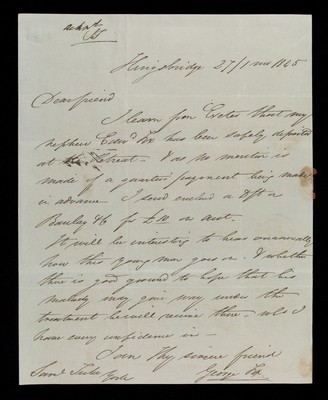 Kingsbridge 27/1 mo 1865
Dear friend
I learn from Exeter that my
nephew Edwd Fox has been safely deposited
at the Retreat - & as no mention is
made of a quarters payment being made
in advance I send enclosed a dft on
Barclay & Co for £10 on acct.
It will be interesting to hear occasionally
how this young man goes on & whether
there is good ground to hope that his
malady may give way under the
treatment he will receive there - which I
have every confidence in -
I am thy sincere friend
George Fox
Saml Tuke
York